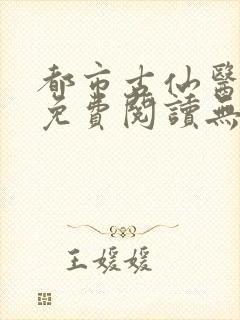 都市古仙醫
免費閱讀無
王媛媛